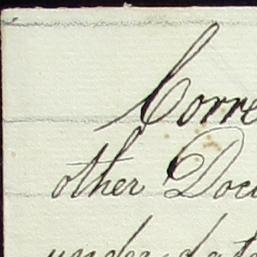 Corre
other Docu
under date